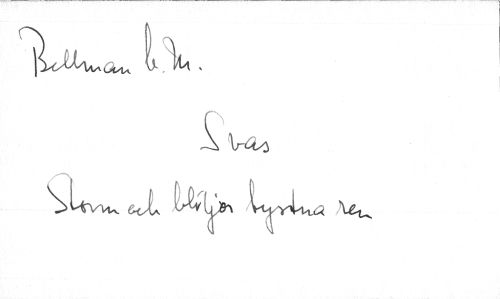 Bellman C. M.
Svas
Storm och böljor tystna ren